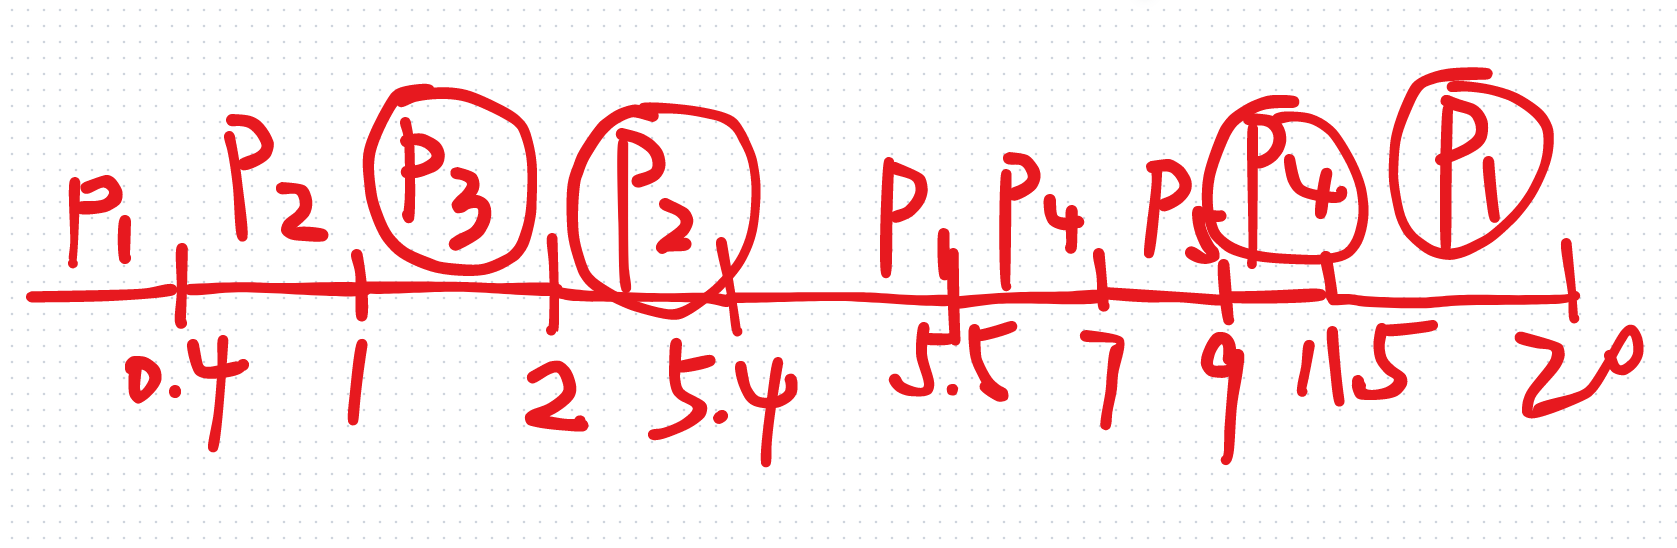 P1 P2 P3 P2 P1 P4 P5 P4 P1
0.4 1 2 5.4 5.5 7 9 115 20